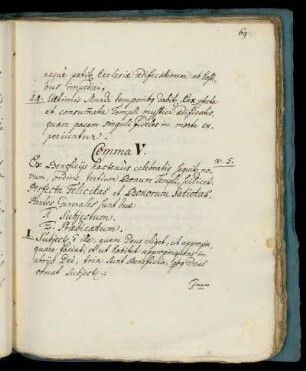 69
neque patitur Ecclesiæ ædificationem ab host
bus impediri,
24. Ultimis Mundi temporibus dabitur Pax perfecta
et consummata Templi mystici ædificatio,
quam pacem singuli fideles in morte ex
periuntur.
Comma V.
v. 5.
Ex Beneficijs hactenus celebratis sequitur no
num, ordine tertium Bonum Templi, scilicet
Perfecta Felicitas et Bonorum Satietas.
Partes Generales sunt duæ
I. Subjectum.
II. Prædicatum.
I. Subject: est ille, quem Deus eliget, ut appropin
quare faciat, et ut habitet
atrijs Dei, tria sunt Beneficia, quibus Deus
ornat Subject: